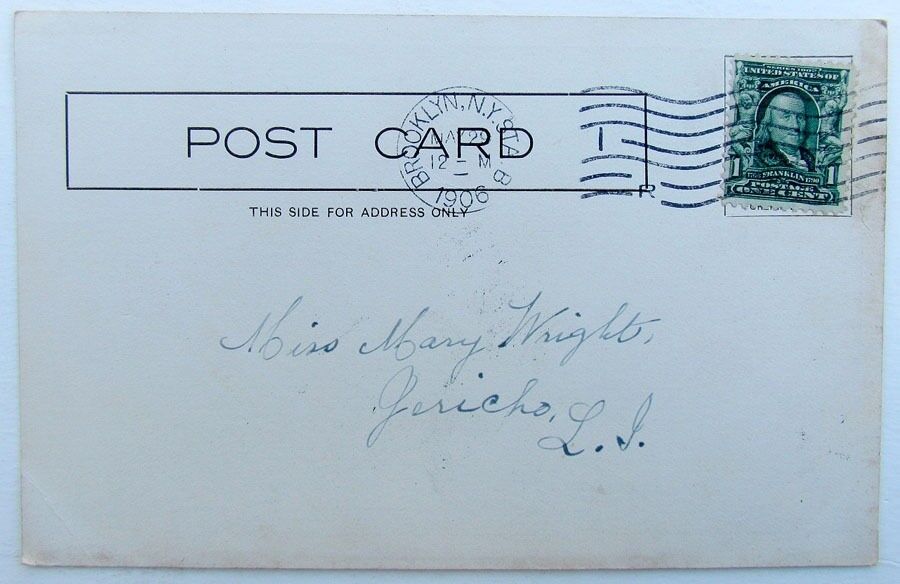 POST CARD
THIS SIDE FOR ADDRESS ONLY
BROOKLYN, N.Y. STA. B
12 - M
1906
1
R
SERIES 1902
UNITED STATES OF
AMERICA
FRANKLIN
1 1
POSTAGE
ONE CENT
Miss Mary Wright,
Jericho,
L.I.